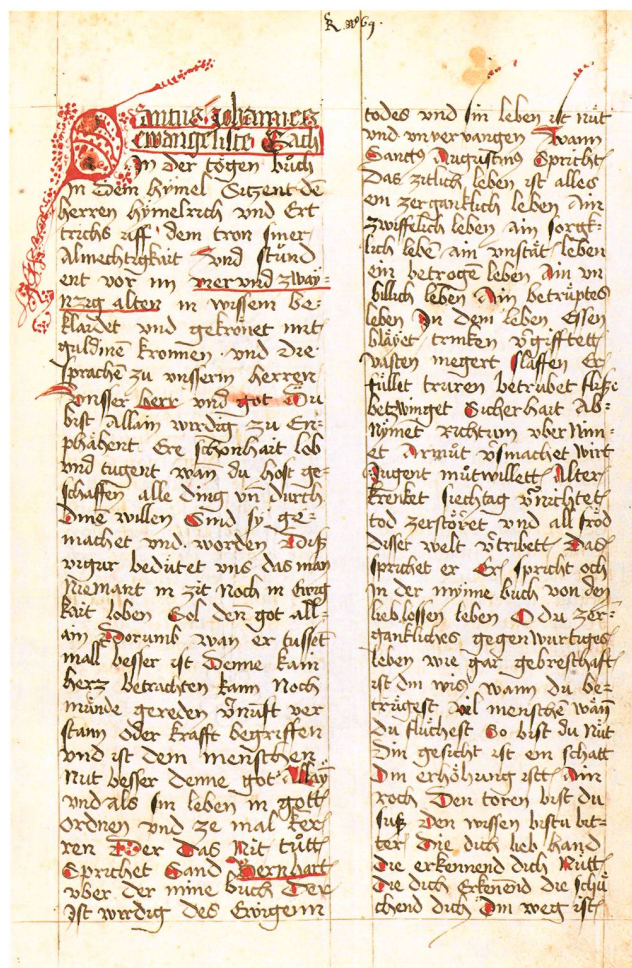 Santus Johannes
ewangeliste Sach
In der togen bůch
in dem hymel Sitzent de
herren hymelrich vnd Ert
trichs uff dem tron siner
Almechtigkait vnd stůnd
ent vor im vier vnd zway=
nzig alten in wissem be=
klaidet vnd gekrönet mit
guldine kronnen vnd die
sprache zu vnsserm herren
vnsser herr vnd got Du
bist Allain wirdig zu En=
phahent Ere schönhait lob
vnd tugent wan du host ge=
schaffen alle ding vn durch
dine willen Sind sy ge=
machet vnd worden Disß
vigur bedütet vns das man
Niemant in zit Noch in Ewig
kait loben Sol den got all=
ain Dorumb wan er tusset
mall besser ist Denne kain
herz betrachten kann Noch
munde gereden vernüft ver
stann oder krafft begriffen
vnd ist dem menschen
Nut besser denne got Allay
vnd als sin leben in gott
ordnen vnd ze mal ker=
ren Der das Nit tůtt
Sprichet Sand Bernhart
vber der mine bůch Der
Ist wirdig des Ewigenn
todes vnd sin leben ist nüt
vnd vnvervangen Wann
Sanctus Augustinus Spricht
Das zitlich leben ist alles
ein zerganklich leben Ain
zwiffelich leben ain sorgk=
lich lebe ain vnstät leben
ein betroge leben Ain vn
billich leben Ain betrüptes
leben In dem leben Essen
bläyet trinken vergifftett
vasten megert slaffen Er
füllet truren betrübet flisße
betzwinget Sicherhait Ab=
Nymet richtum vber Nim=
et Armůt versmachet wirt
Jugent můtwillett Alter
krenket siechtag vernichtet
tod zerstöret vnd all fröd
disser welt vertribett Das
sprichet er Er spricht och
in der myme buch von den
lieblossen leben O du zer=
gankliches gegenwurtiges
leben wie gar gebresthaft
ist din wis wann du be=
trügest vil mensche wan
du fluchest So bist du Nüt
Din gesicht ist ein schatt
Din erhöhung ist Ain
roch Den toren bist du
süß Den wissen bistu bit=
ter Die dich lieb hand
die erkennend dich Nütt
Die dich Erkenend die schü
chend dich Din weg ist